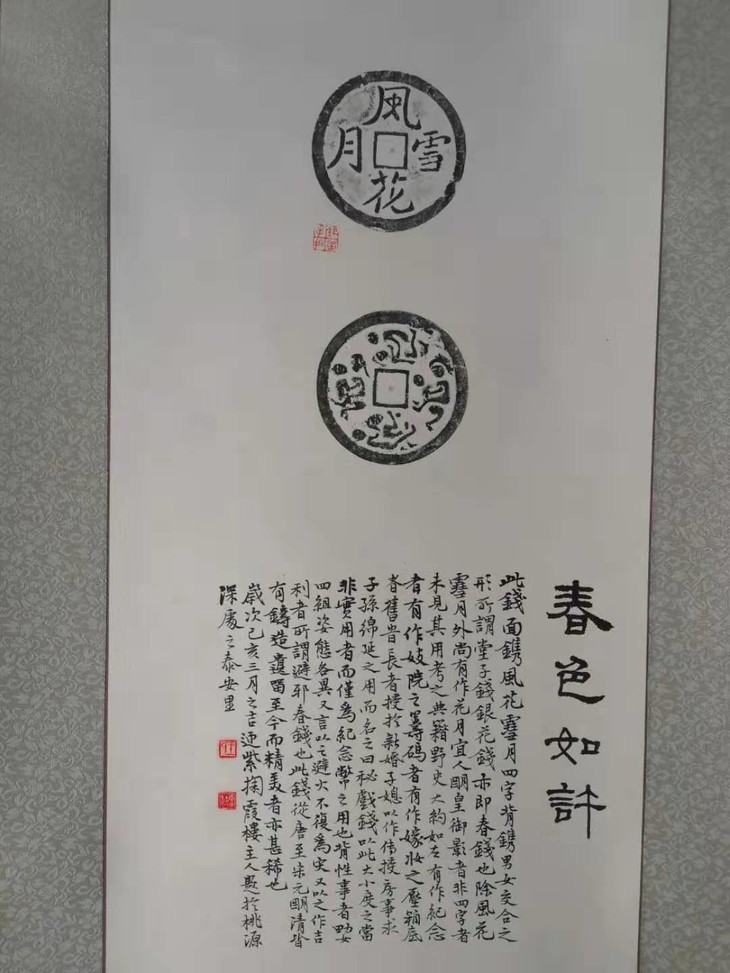 風花雪月
春色如許
此錢面鐫風花雪月四字背鐫男女交合之
形所謂堂子錢銀花錢亦即春錢也除風花
雪月外尚有作花月宜人明皇御影者非四字者
未見其用考之典籍野史大約如左有作紀念
者有作妓院之籌碼者有作嫁妝之壓箱底
者舊昔長者授於新婚子媳以作傳授房事求
子孫綿延之用而名之曰秘戲錢以此大小度之當
非實用者而僅為紀念幣之用也背性事者
四組姿態各異又言以之避火不復為灾又以之作吉
利者所謂避邪春錢也此錢從唐至宋元明清皆
有鑄造遺留至今而精美者亦甚稀也
歲次己亥三月之吉 紫掬霞樓主人題於桃源
深處之泰安